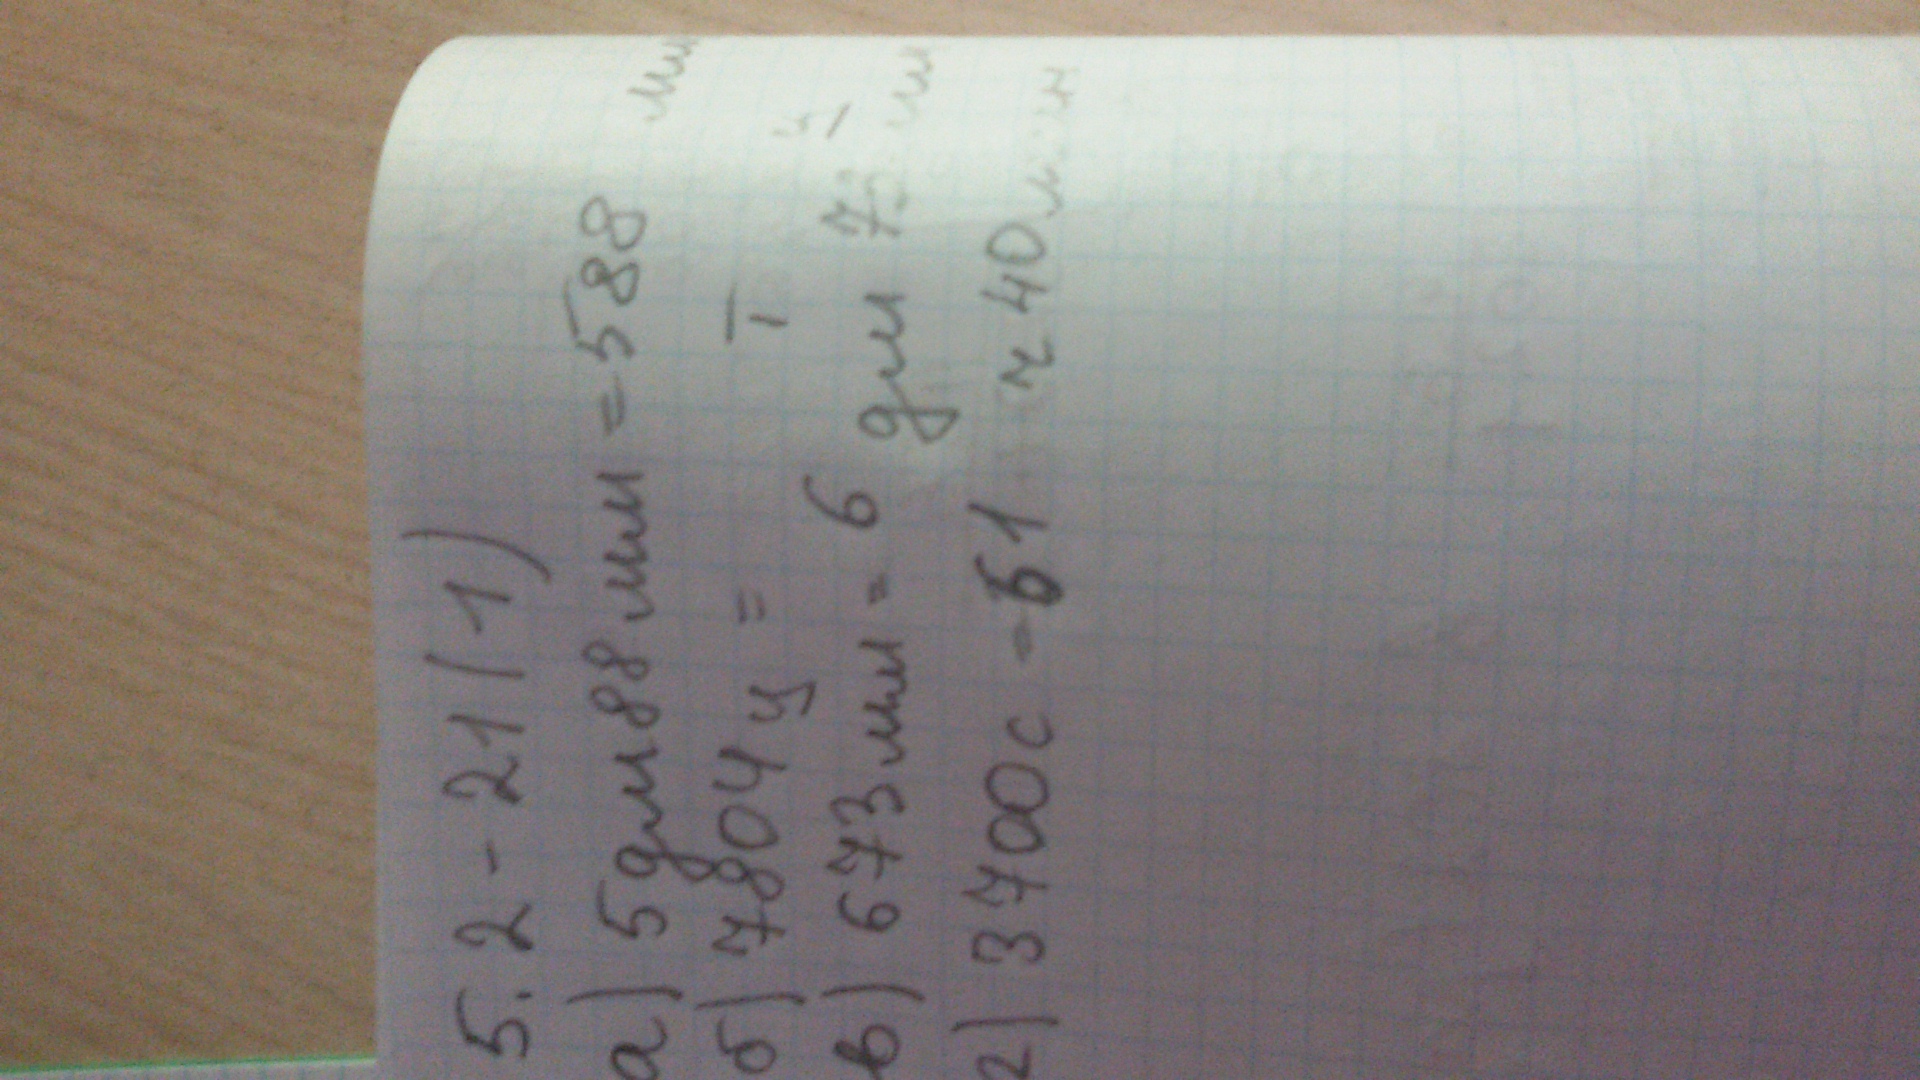 5.2 - 21(1)
а) 5дм88мм = 588 мм
б) 7804ц = т ц
в) 673мм = 6 дм 7 мм
г) 3700с - 61 ч 40 мин